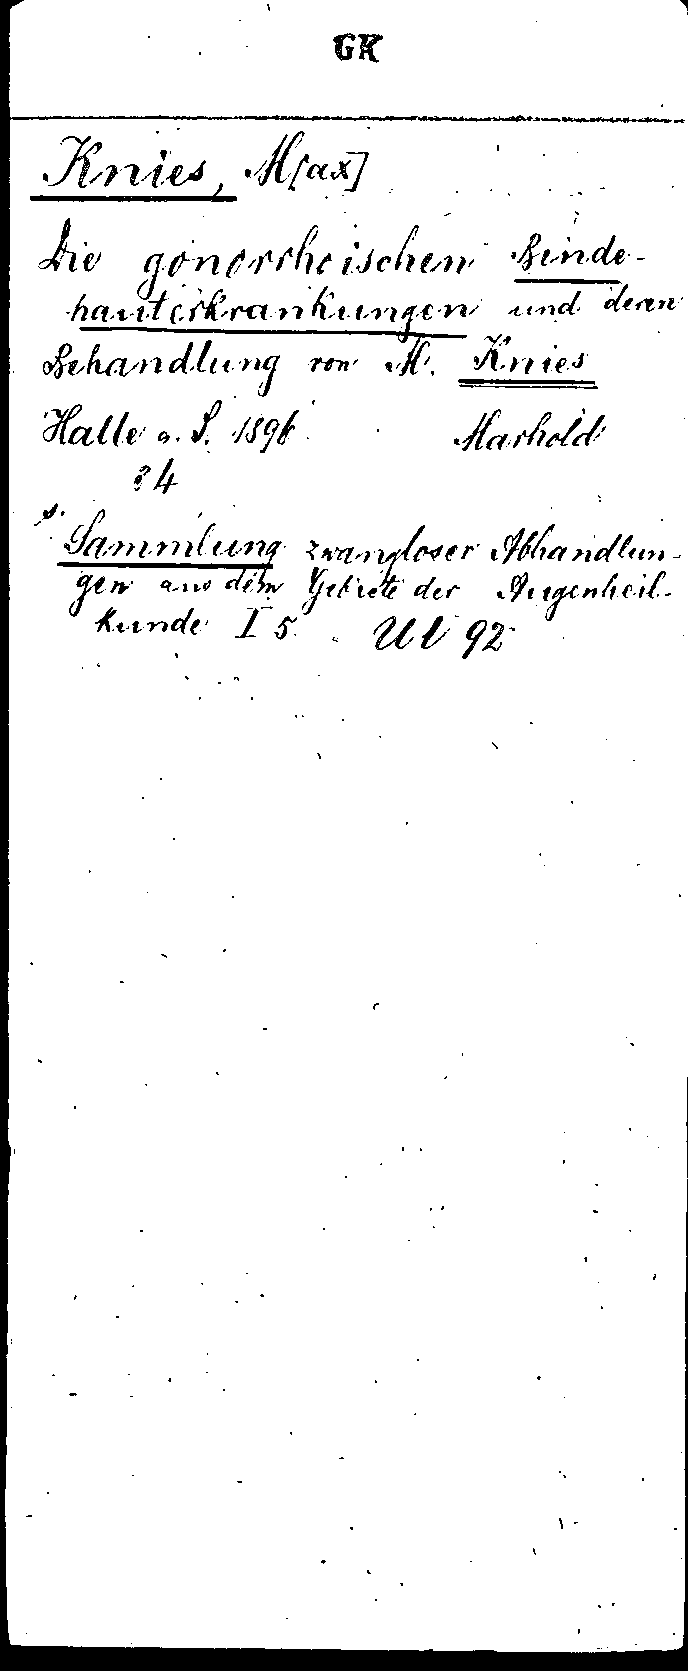 GK
Knies, M[ax]
Die gonorrhoischen Binde-
hauterkrankungen und deren
Behandlung von M. Knies
Halle a. S. 1896 Marhold
8 4
s. Sammlung zwangloser Abhandlun-
gen aus dem Gebiete der Augenheil-
kunde I 5. Ul 92